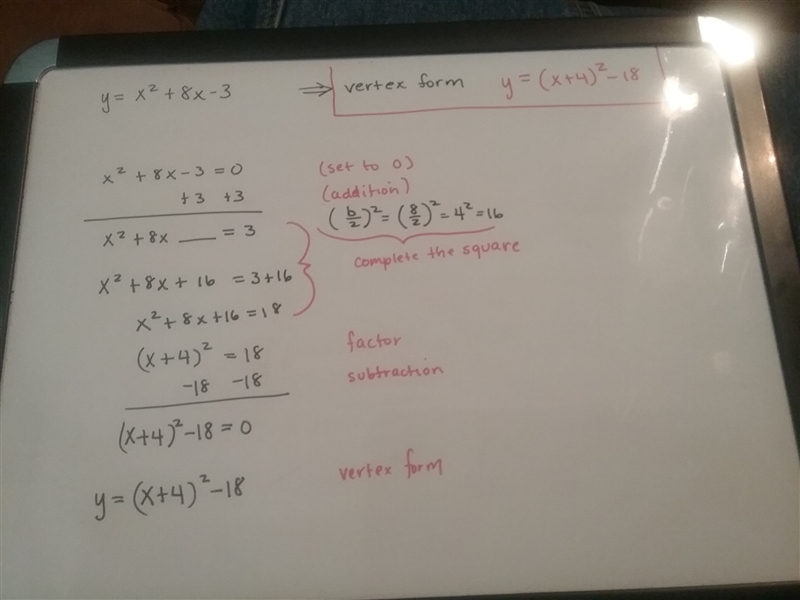 y = x² + 8x - 3 ⇒ vertex form y = (x+4)² - 18
x² + 8x - 3 = 0 (set to 0)
+3 +3 (addition)
x² + 8x ___ = 3 (b/2)² = (8/2)² = 4² = 16
complete the square
x² + 8x + 16 = 3 + 16
x² + 8x + 16 = 18
(x+4)² = 18 factor
-18 -18 subtraction
(x+4)² - 18 = 0
y = (x+4)² - 18 vertex form